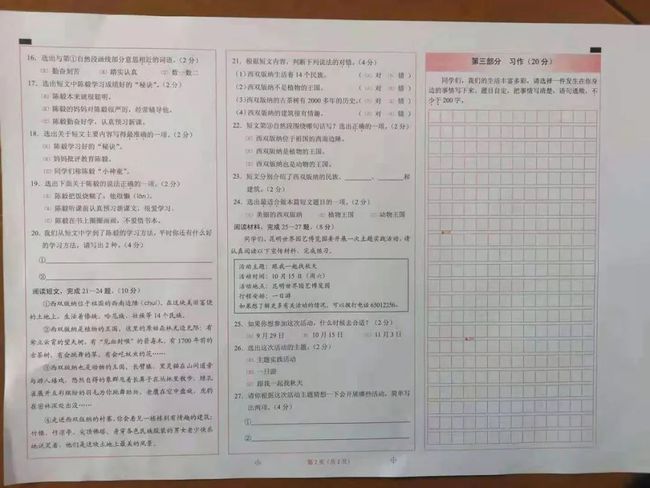 16. 选出与第①自然段画线部分意思相近的词语。(2分)
勤奋刻苦 踏实认真 数一数二
17. 选出短文中陈毅学习成绩好的“秘诀”。(2分)
陈毅本来就很聪明。
陈毅的妈妈对陈毅很严厉，经常辅导他。
陈毅勤奋好学，认真预习新课。
18. 选出关于短文主要内容写得最准确的一项。(2分)
陈毅学习好的“秘诀”。
妈妈批评教育陈毅。
同学们称陈毅“小神童”。
19. 选出下面关于陈毅的说法正确的一项。(2分)
陈毅把饭烧糊了，他很懒(lǎn)。
陈毅听课前认真预习新课文，很爱学习。
陈毅在书上圈圈画画，不爱惜书本。
20. 我们从短文中学到了陈毅的学习方法，平时你还有什么好
的学习方法，请写出2种。(4分)
①
②
阅读短文，完成21—24题。(10分)
①西双版纳位于祖国的西南边陲(chuí)，在这块美丽富饶
的土地上，生活着傣族、哈尼族、壮族等14个民族。
②西双版纳是植物的王国，这里的原始森林无边无际：有
耸立云霄的望天树，有“见血封喉”的箭毒木，有1700年前的
古茶树，有会跳舞的草，有会吃蚊虫的花……
③西双版纳也是动物的王国，长臂猿、黑灵猴在山间追拿
与游人嬉戏，悠然自得的象群甩着长鼻子在丛林里散步，绿孔
雀展开五彩缤纷的羽毛为你跳舞助兴，老鹰在空中盘旋，虎豹
在密林深处出没……
④走进西双版纳的村寨，你会看见一栋栋别有情趣的建筑：
竹楼、竹凉亭、尖顶佛塔，身穿各色民族服装的男女老少快乐
地说笑着，他们是这块土地上最美的风景。
21. 根据短文内容，判断下列说法的对错。(4分)
(1)西双版纳生活着14个民族。 ( 对 错 )
(2)西双版纳不是植物的王国。 ( 对 错 )
(3)西双版纳的古茶树有2000多年的历史。( 对 错 )
(4)西双版纳没有猴子。 ( 对 错 )
22. 短文第③自然段围绕哪句话写？选出正确的一项。(2分)
西双版纳位于祖国的西南边陲。
西双版纳是植物的王国。
西双版纳也是动物的王国。
23. 短文分别介绍了西双版纳的民族、 、 和
建筑。(2分)
24. 选出最适合做本篇短文题目的一项。(2分)
美丽的西双版纳 植物王国 动物王国
阅读材料，完成25—27题。(8分)
同学们，昆明世界园艺博览园要开展一次主题实践活动，请
认真阅读以下宣传材料，完成练习。
活动主题：跟我一起找秋天
活动时间：10月15日(周六)
活动地点：昆明世界园艺博览园
行程安排：一日游
如果想了解更多有关活动的情况，可以拨打电话65012256。
25. 如果你想参加这次活动，什么时候去合适？(2分)
9月29日 10月15日 11月3日
26. 选出这次活动的主题。(2分)
主题实践活动
一日游
跟我一起找秋天
27. 请你根据这次活动主题猜想一下会开展哪些活动，简单写
出两项。(4分)
①
②
第2页(共2页)
第三部分 习作(20分)
同学们，我们的生活丰富多彩，请选择一件发生在你身
边的事情写下来，题目自定，把事情写清楚，语句通顺，不
少于200字。